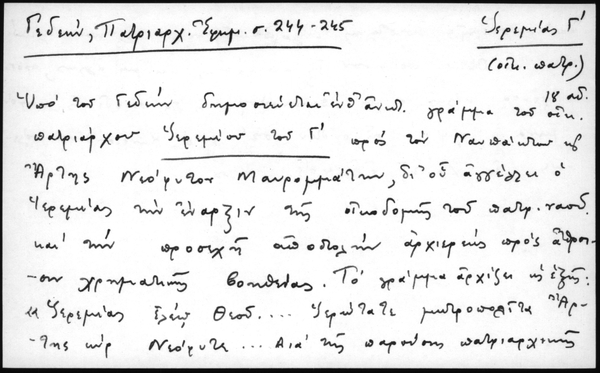 Γεδεών, Πατριαρχ. Ἐφημ. σ. 244-245
Ἱερεμίας Γ΄
(οἰκ. πατρ.)
18 αἰ.
Ὑπό τοῦ Γεδεών δημοσιεύεται ἐνθ᾽ἀνωτ. γράμμα τοῦ οἰκ.
πατριάρχου Ἱερεμίου τοῦ Γ΄ πρός τόν Ναυπάκτου καί
Ἄρτης Νεόφυτον Μαυρομμάτην, δι᾽οὗ ἀγγέλλει ὁ
Ἱερεμίας τήν ἔναρξιν τῆς οἰκοδομῆς τοῦ πατρ. ναοῦ
καί τήν προσεχῆ ἀποστολήν ἀρχιερέως πρός ἄθροι-
-σιν χρηματικῆς βοηθείας. Τό γράμμα ἀρχίζει ὡς ἑξῆς:
«Ἱερεμίας ἐλέῳ Θεοῦ.... Ἱερώτατε μητροπολῖτα Ἄρ-
-της κύρ Νεόφυτε ... Διά τῆς παρούσης πατριαρχικῆς